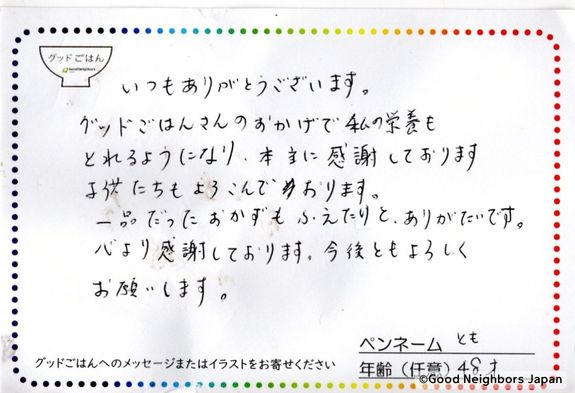 グッドごはん
いつもありがとうございます。
グッドごはんさんのおかげで私の栄養も
とれるようになり、本当に感謝しております
子供たちもよろこんでおります。
一品だったおかずもふえたりと、ありがたいです。
心より感謝しております。今後ともよろしく
お願いします。
ペンネーム とも
グッドごはんへのメッセージまたはイラストをお寄せください
年齢（任意）48才
©Good Neighbors Japan